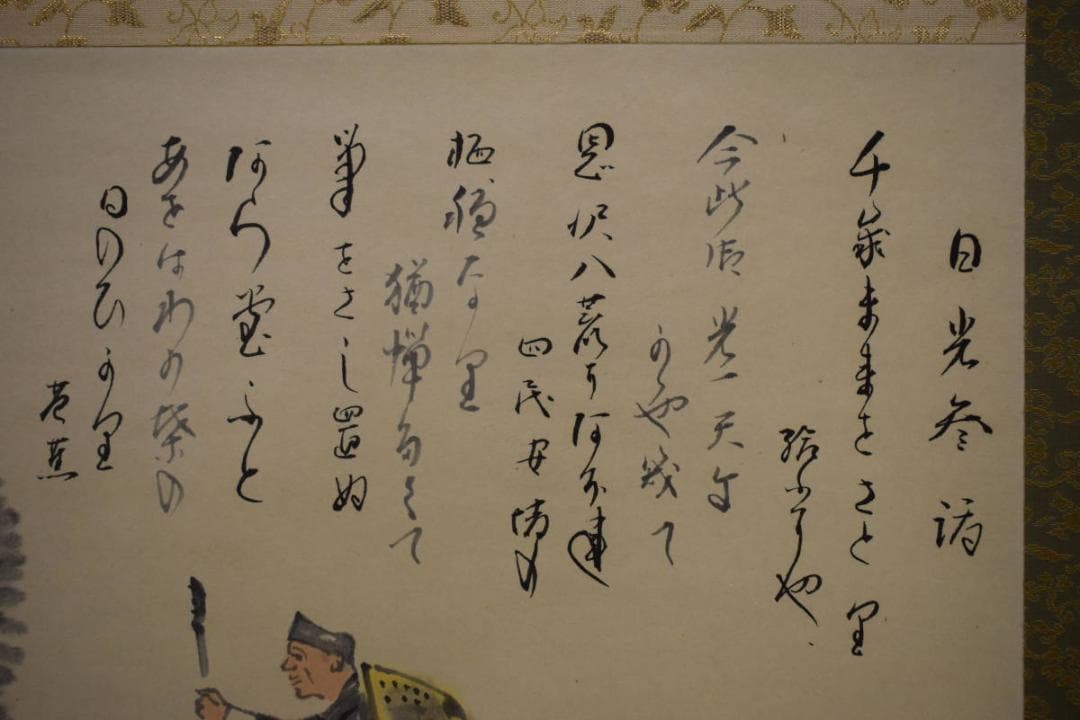 日光参詣
千歳未来をさとり
給ふにや
今此御光一天に
かゝやきて
恩沢八荒にあふれ
四民安堵の
栖穏なり
猶憚多くて
筆をさし置ぬ
あらたふと
あをはわか葉の
日のひかり
芭蕉